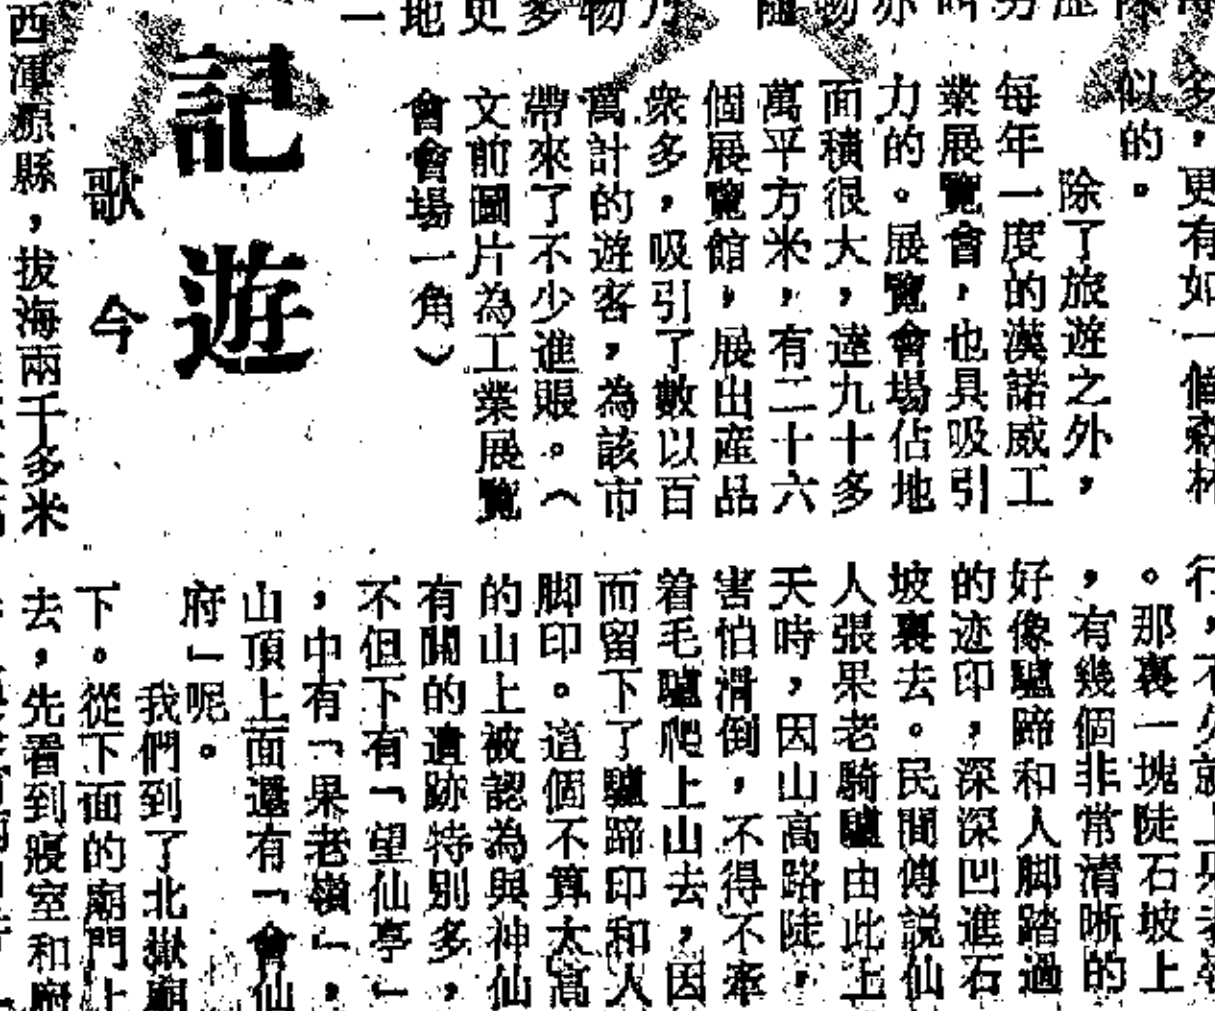 似的。
除了旅遊之外，
每年一度的漢諾威工
業展覽會，也具吸引
力的。展覽會場佔地
面積很大，達九十多
萬平方米，有二十六
個展覽館，展出産品
衆多，吸引了數以百
萬計的遊客，為該市
帶來了不少進賬。（
文前圖片為工業展覽
會會場一角）
記遊
歌今
西渾源縣，拔海兩千多米
。那裏一塊陡石坡上
，有幾個非常清晰的
好像驢蹄和人脚踏過
的迹印，深深凹進石
坡裏去。民間傳説仙
人張果老騎驢由此上
天時，因山高路陡，
害怕滑倒，不得不牽
着毛驢爬上山去，因
而留下了驢蹄印和人
脚印。這個不算太高
的山上被認為與神仙
有關的遺跡特别多，
不但下有「望仙亭」
，中有「果老嶺」，
山頂上面還有「會仙
府」呢。
我們到了北嶽廟
下。從下面的廟門上
去，先看到寢室和